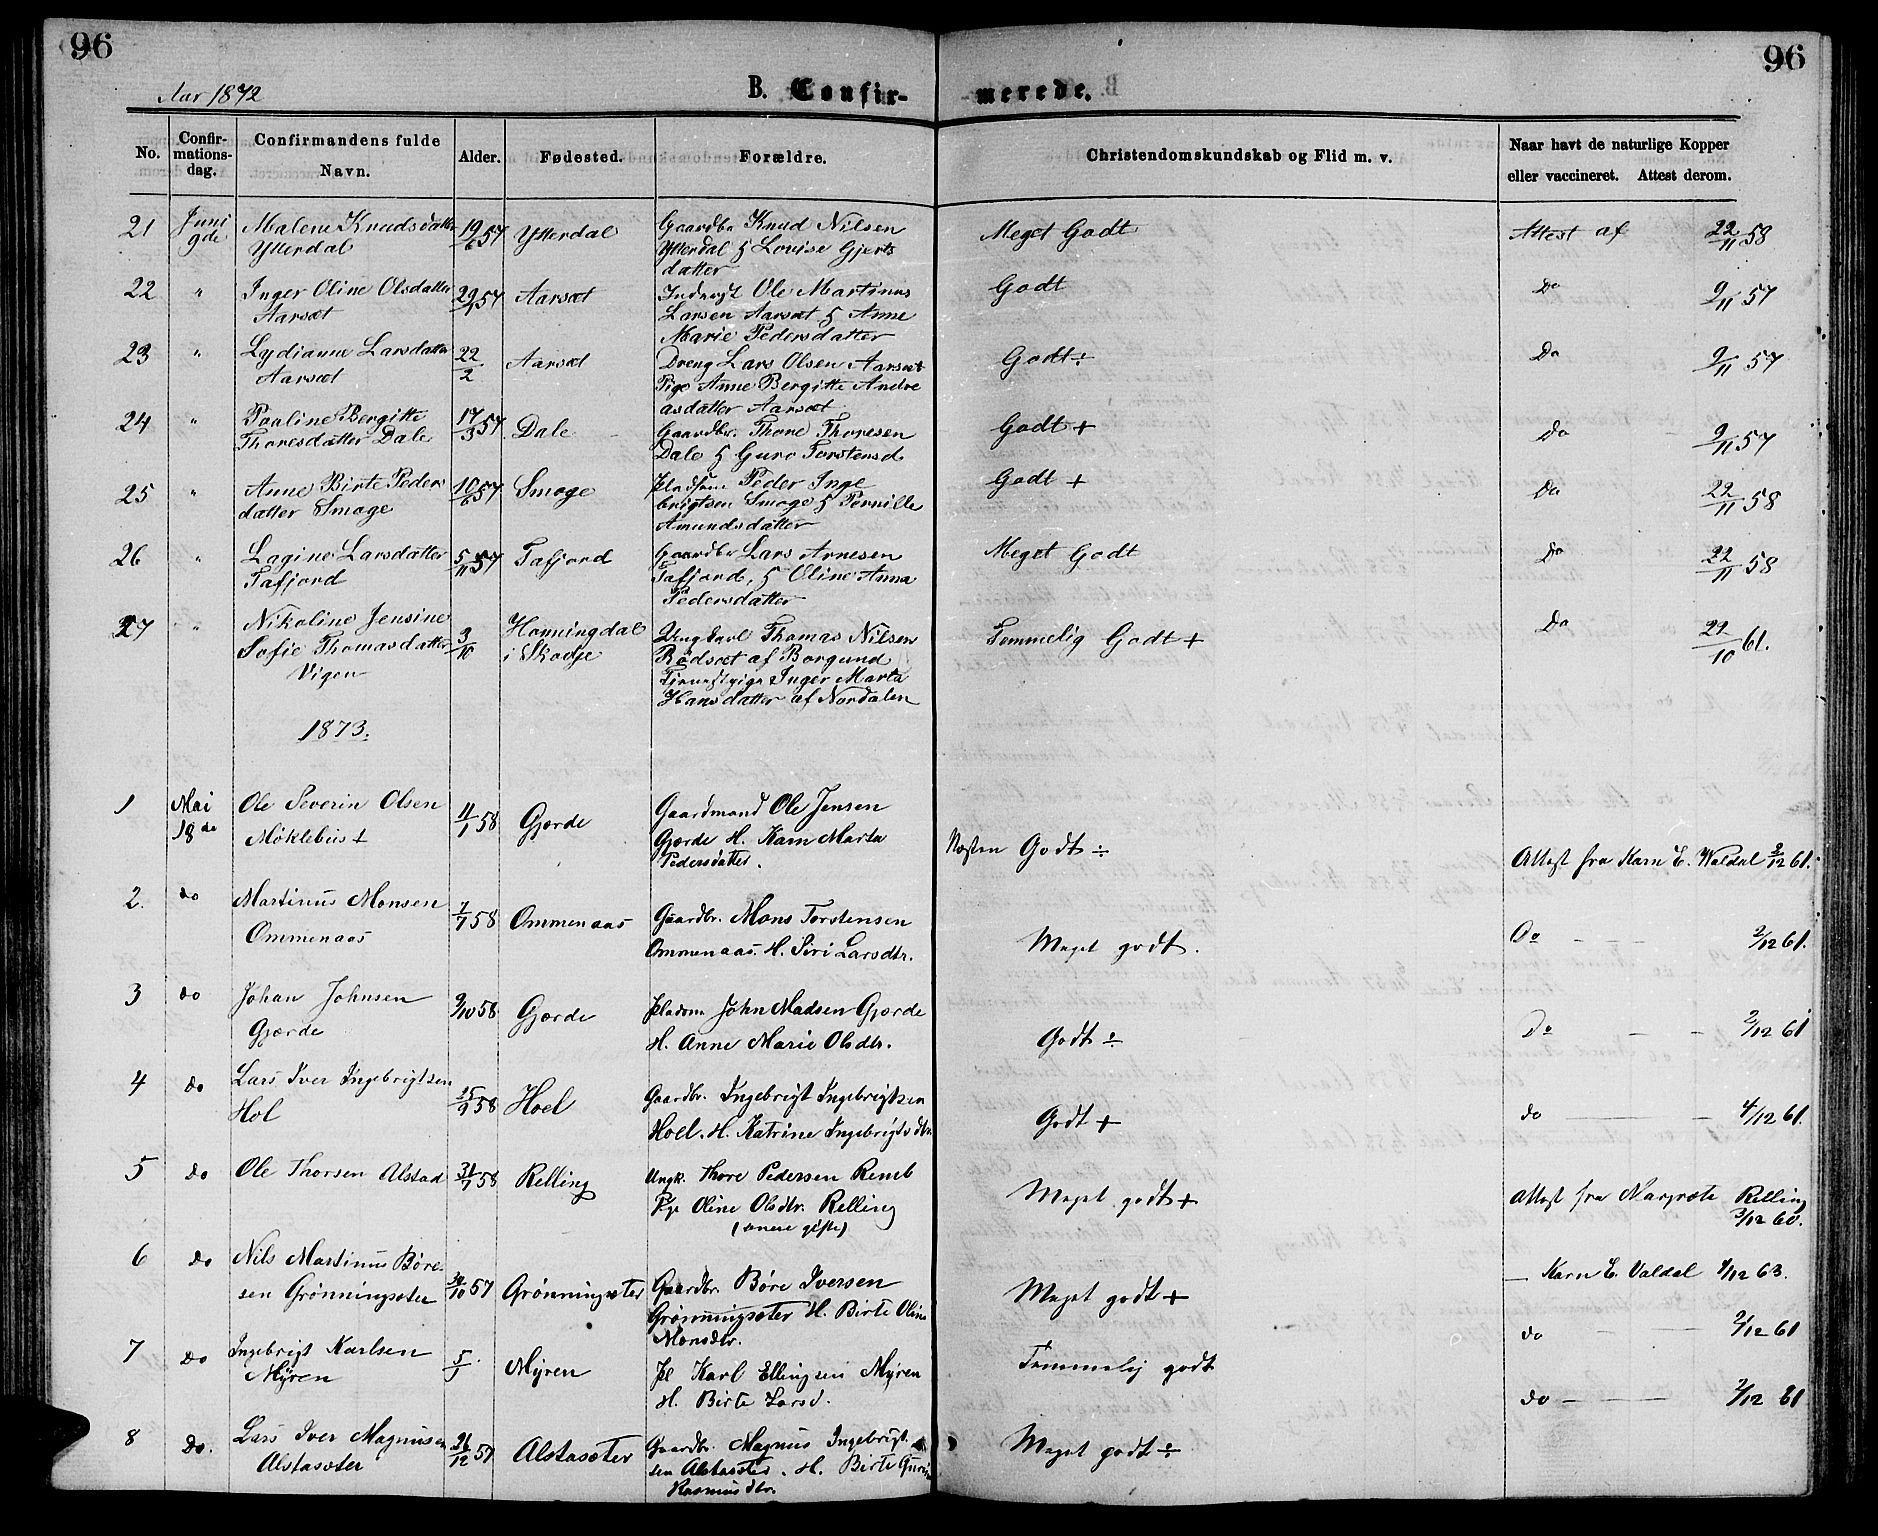 96
96
Aar 1872
B. Confir-
merede.
No.
Confir-
mations-
dag.
Confirmandens fulde
Navn.
Alder.
Fødested.
Forældre.
Christendomskundskab og Flid m. v.
Naar havt de naturlige Kopper
eller vaccineret. Attest derom.
21 Juni 9de Malene Knudsdatter 19/6 57 Ytterdal Gaardbr Knud Nilsen Meget Godt Attest af 22/11 58
Ytterdal Ytterdal & Lovise Gjerts
datter
22 " Inger Oline Olsdatter 29/1 57 Aarsæt Ole Martinus Godt Do 9/11 57
Aarsæt Larsen Aarsæt & Anne
Marie Pedersdatter
23 " Lydianne Larsdatter 22/2 Aarsæt Dreng Lars Olsen Aarsæt Godt ÷ Do 9/11 57
Aarsæt Pige Anne Bergitte Andre
asdatter Aarsæt
24 " Paaline Bergitte 17/3 57 Dale Gaardbr. Thore Thoresen Godt + Do 9/11 57
Thoresdatter Dale Dale & Guro Torstensd
25 " Anne Birte Peders 10/6 57 Smoge Peder Inge Godt + Do 22/11 58
datter Smoge brigtsen Smoge & Pernille
Amundsdatter
26 " Lagine Larsdatter 5/11 57 Tafjord Gaardbr Lars Arnesen Meget Godt Do 22/11 58
Tafjord Tafjord, & Oline Anna
Pedersdatter
27 " Nikoline Jensine 3/10 Honningdal Ungkarl Thomas Nilsen Temmelig Godt + Do 22/10 61.
Sofie Thomasdatter i Skodje Rødsæt af Borgund
Vigen Inger Marta
Hansdatter af Nordalen
1873.
1 Mai 18de Ole Severin Olsen 11/1 58 Gjærde Gaardmand Ole Jensen Næsten Godt ÷ Attest fra Karn E. Valdal 2/12 61.
Møklebust Gjærde H. Karn Marta
Pedersdatter.
2. do Martinus Monsen 7/7 58 Ommenaas Gaardbr. Mons Torstensen Meget godt. Do 2/12 61.
Ommenaas Ommenaas. H. Siri Larsdtr.
3 do Johan Johnsen 9/10 58 Gjærde Pladsm John Madsen Gjærde Godt ÷ Do 2/12 61
Gjærde H. Anne Marie Olsdtr.
4 do Lars Iver Ingebrigtsen 25/9 58 Hoel Gaardbr. Ingebrigt Ingebrigtsen Godt + do 4/12 61.
Hol Hoel. H. Katrine Ingebrigtsdtr.
5 do Ole Thorsen Alstad 31/7 58 Relling Ungk. Thore Pedersen Remb Meget godt + Attest fra Margrete Relling
Pge Oline Olsdtr. Relling 3/12 60.
(senere gifte)
6 do Nils Martinus Børe- 30/10 57 Grønningsæter Gaardbr. Børe Iversen Meget godt + — Karn E. Valdal 4/12 63.
sen Grønningsæter Grønningsæter H. Birte Oline
Monsdtr.
7 do Ingebrigt Karlsen 5/1 Myren Pl Karl Ellingsen Myren Temmelig godt do 2/12 61
Myren H. Birte Larsd.
8 do. Lars Iver Magnusen 26/12 57 Alstasæter Gaardbr. Magnus Ingebrigt- Meget godt ÷ do 2/12 61
Alstasæter sen Alstasæter. H. Birte Gurine
Rasmusdtr.